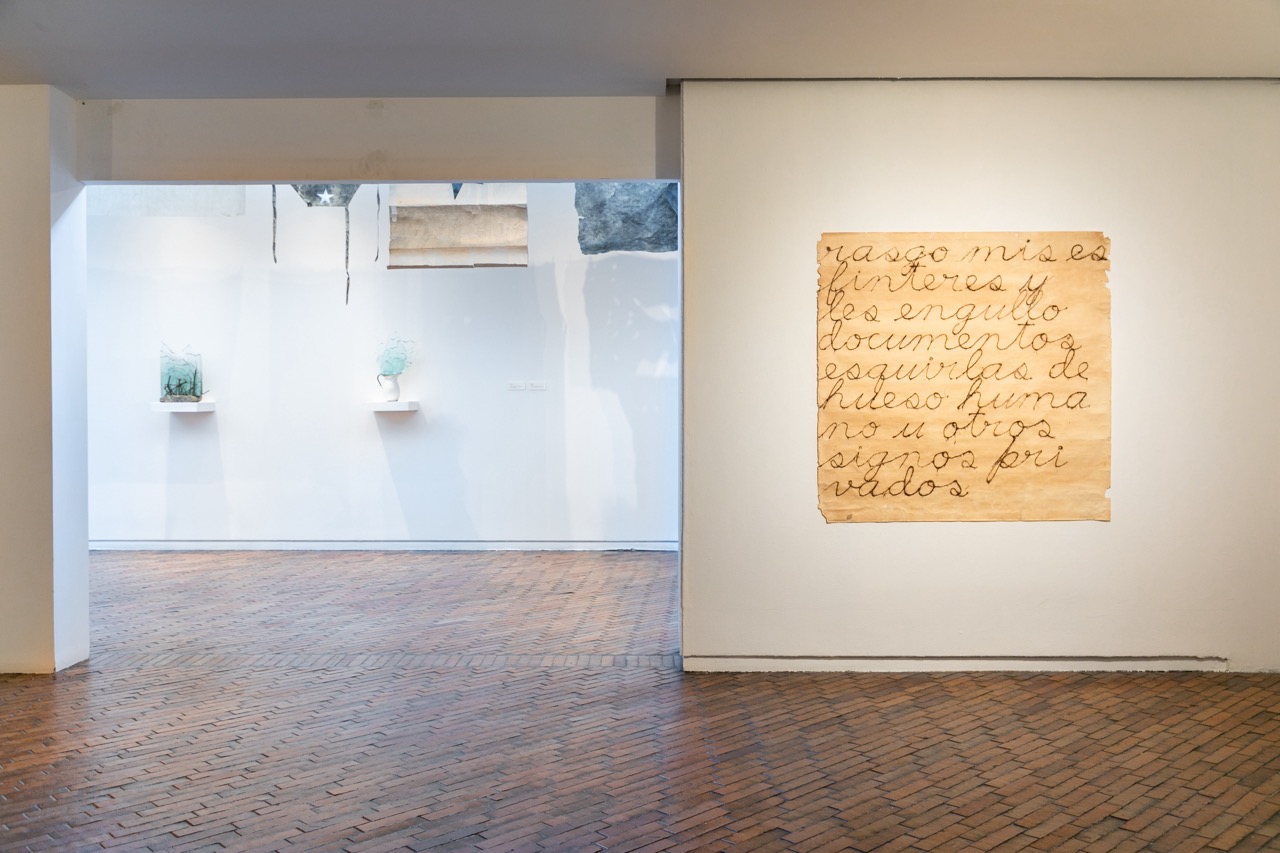 rasgo mis es
finteres y
les engullo
documentos
esquirlas de
hueso huma
no u otros
signos pri
vados